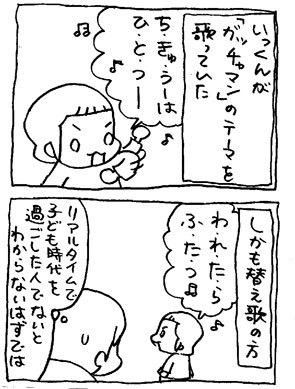 いっくんが
「ガッチャマン」のテーマを
歌っていた
ち・きゅ・うーは
ひ・と・つーー
しかも替え歌の方
わ・れ・た・ら
ふ・た・つ
リアルタイムで
子ども時代を
過ごした人でないと
わからないはずでは